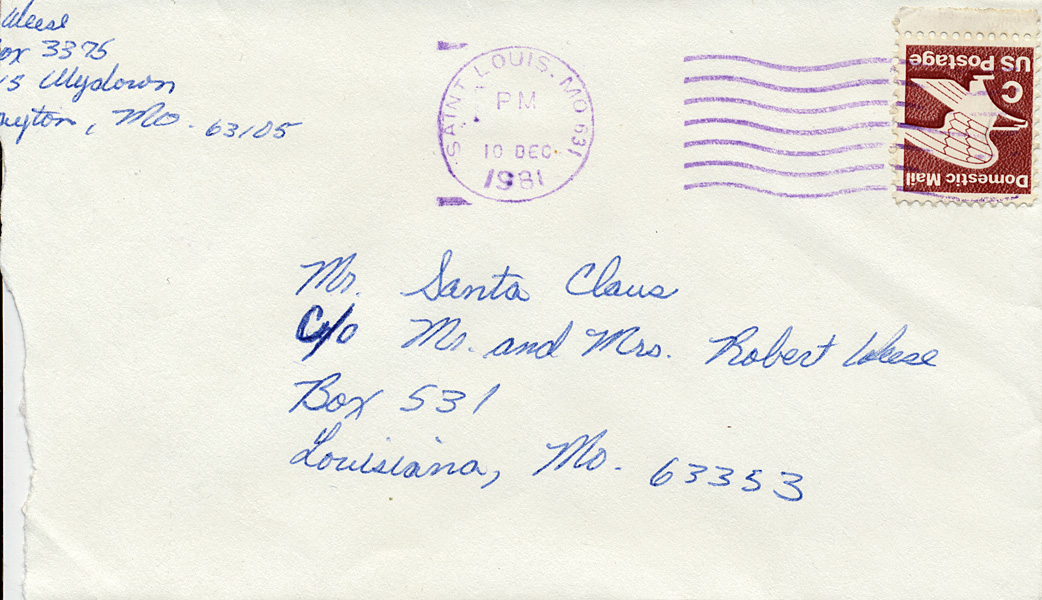 Weese
ox 3375
's Wydown
ayton, Mo. 63105
SAINT LOUIS. MO 631
PM
10 DEC
1981
US Postage
C
Domestic Mail
Mr. Santa Claus
c/o Mr. and Mrs. Robert Weese
Box 531
Louisiana, Mo. 63353